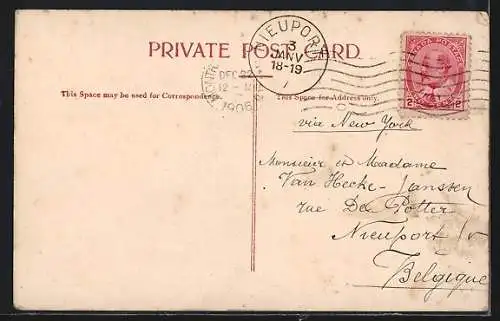 PRIVATE POST CARD.
NIEUPORT
3
JANV
18-19
DEC 22
12 -
1906
CANADA POSTAGE
2 2
This Space may be used for Correspondence.
This Space for Address only.
via New York
Monsieur et Madame
Van Hecke-Janssen
rue De Potter
Nieuport
Belgique